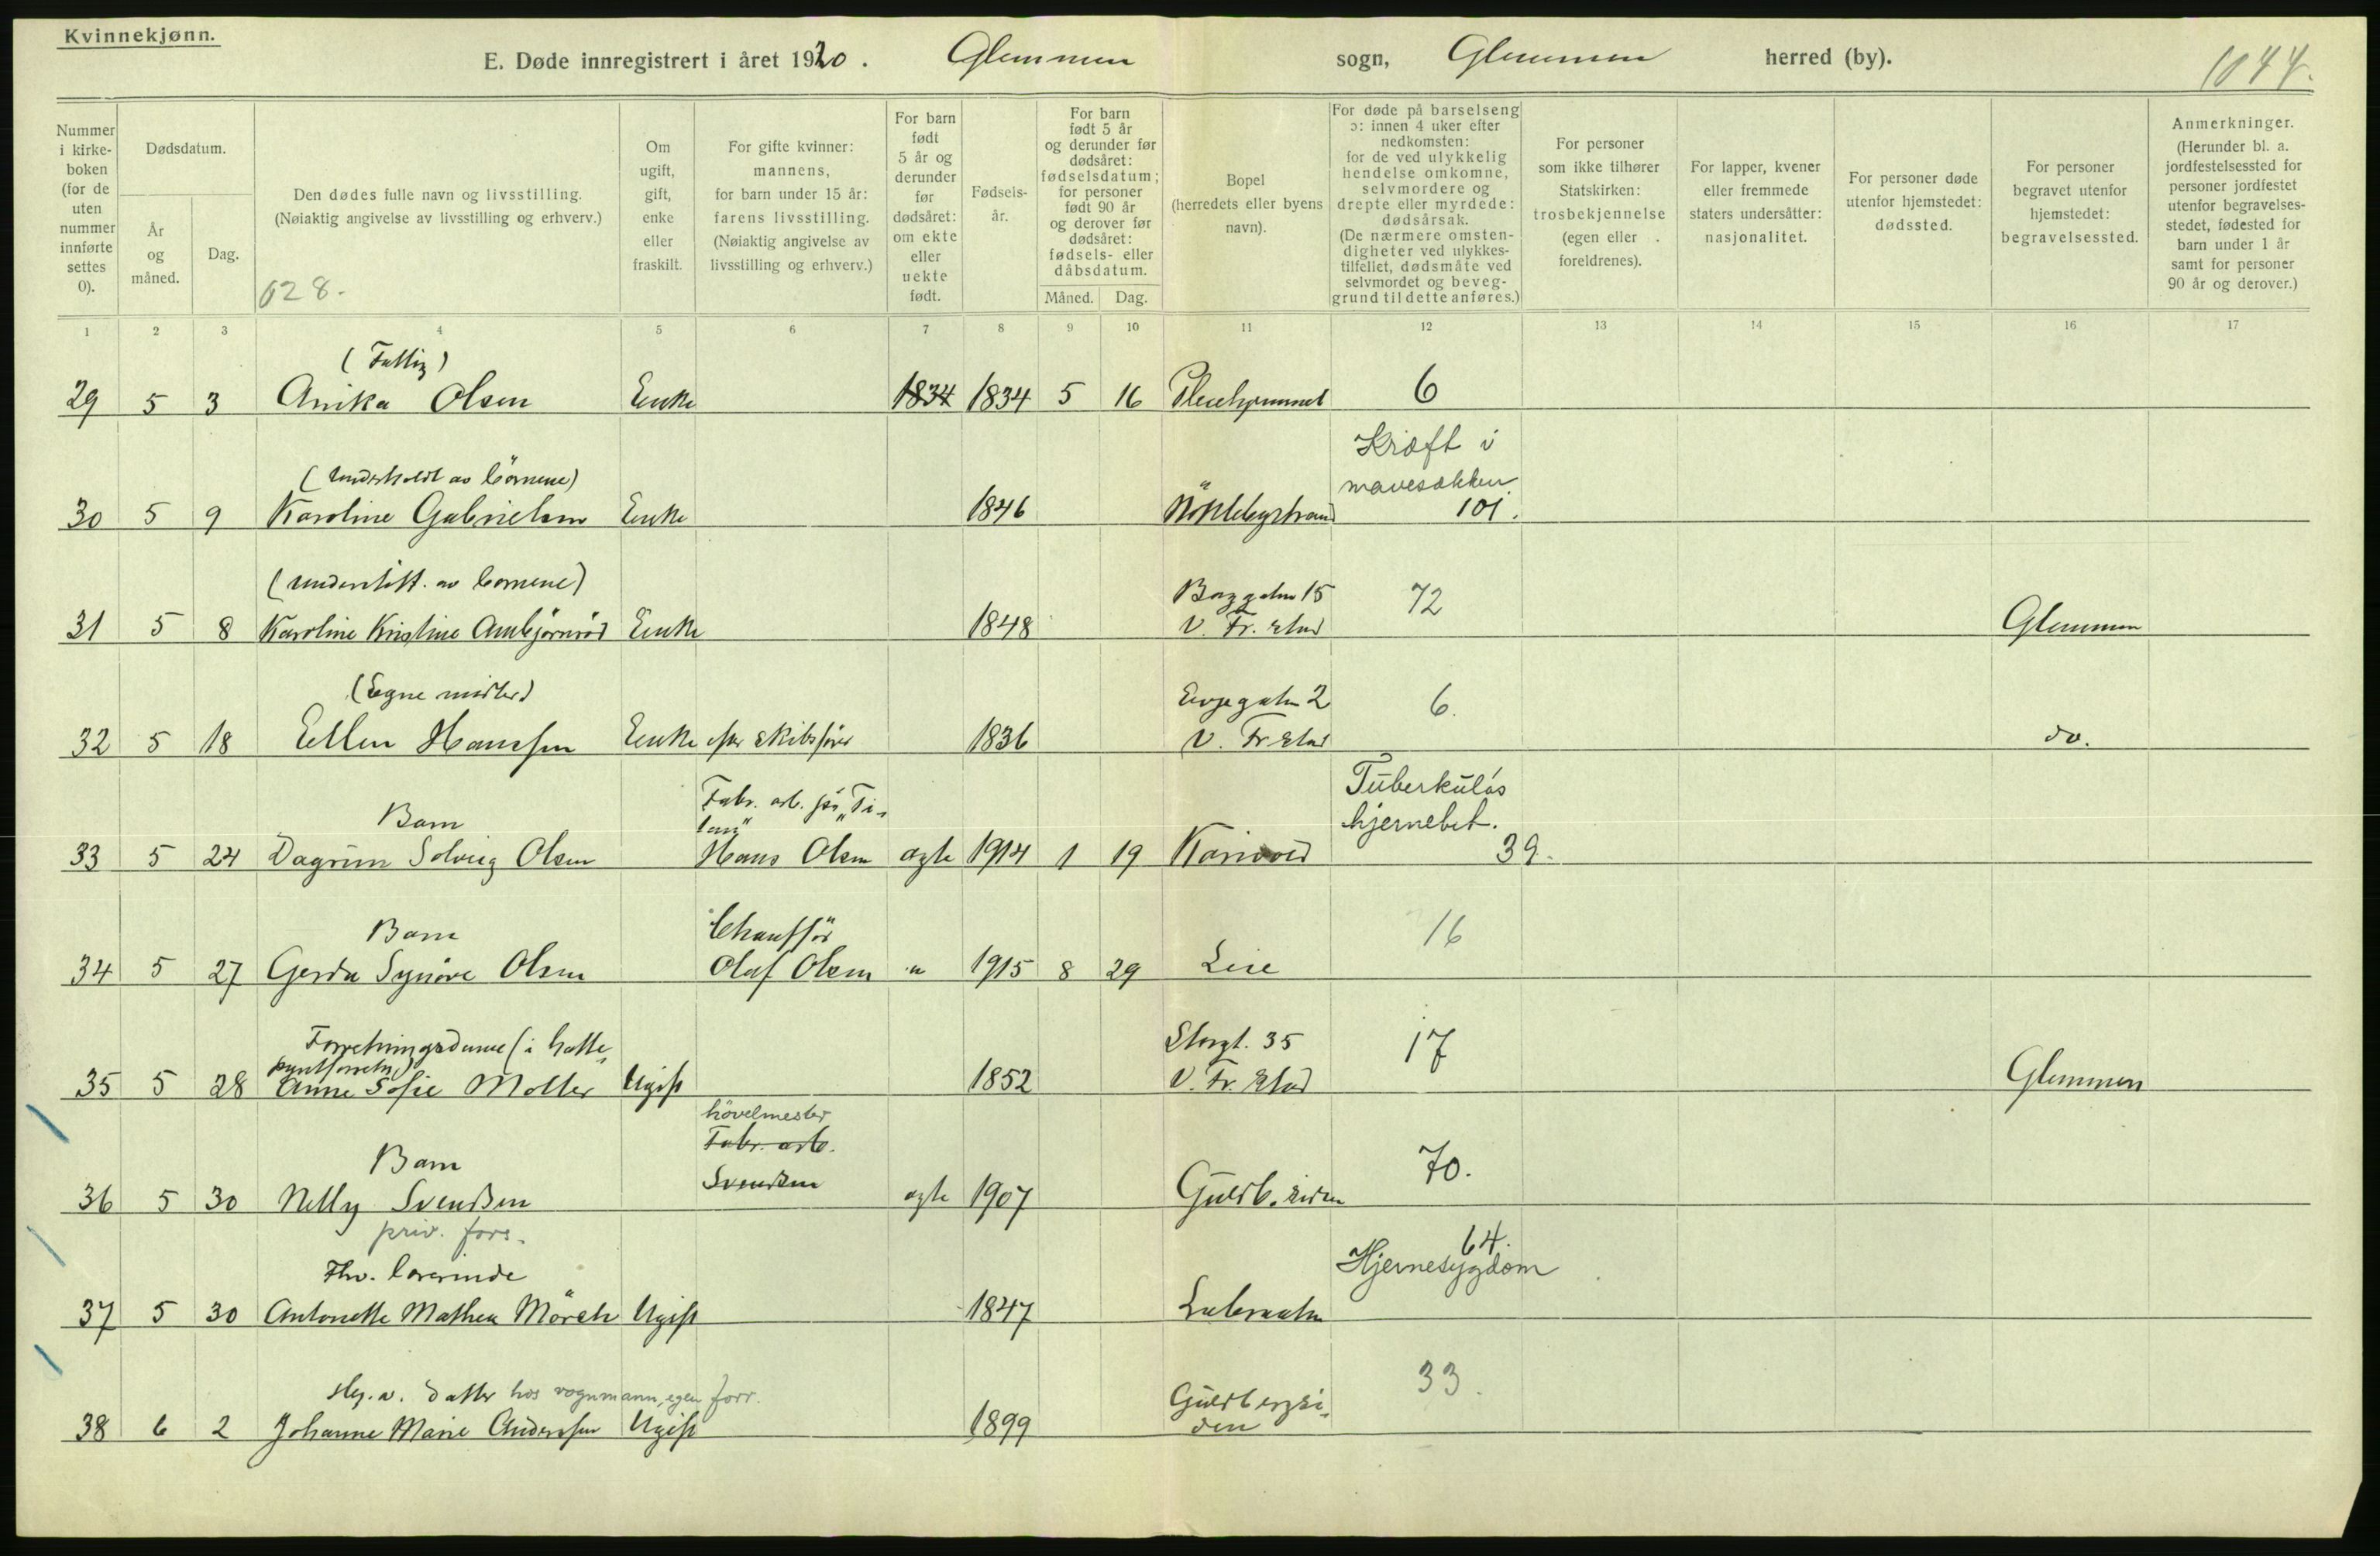 Kvinnekjønn.
E. Døde innregistrert i året 1920. Glemmen sogn, Glemmen herred (by). 1044.
Nummer i kirke-boken (for de uten nummer innførte settes 0).
Dødsdatum.
År og måned.
Dag.
Den dødes fulle navn og livsstilling.
(Nøiaktig angivelse av livsstilling og erhverv.)
628.
Om ugift, gift, enke eller fraskilt.
For gifte kvinner: mannens, for barn under 15 år: farens livsstilling. (Nøiaktig angivelse av livsstilling og erhverv.)
For barn født 5 år og derunder før dødsåret: om ekte eller uekte født.
Fødsels-år.
For barn født 5 år og derunder før dødsåret: fødselsdatum; for personer født 90 år og derover før dødsåret: fødsels- eller dåbsdatum.
Måned. Dag.
Bopel (herredets eller byens navn).
For døde på barselseng ɔ: innen 4 uker efter nedkomsten: for de ved ulykkelig hendelse omkomne, selvmordere og drepte eller myrdede: dødsårsak. (De nærmere omsten-digheter ved ulykkes-tilfellet, dødsmåte ved selvmordet og beveg-grund til dette anføres.)
For personer som ikke tilhører Statskirken: trosbekjennelse (egen eller foreldrenes).
For lapper, kvener eller fremmede staters undersåtter: nasjonalitet.
For personer døde utenfor hjemstedet: dødssted.
For personer begravet utenfor hjemstedet: begravelsessted.
Anmerkninger. (Herunder bl. a. jordfestelsessted for personer jordfestet utenfor begravelses-stedet, fødested for barn under 1 år samt for personer 90 år og derover.)
1 2 3 4 5 6 7 8 9 10 11 12 13 14 15 16 17
(Fattig)
29 5 3 Anika Olsen Enke 1834 1834 5 16 Pleiehjemmet 6
Kræft i
(Underholdt av börnene) mavesækken
30 5 9 Karoline Gabrielsen Enke 1846 101.
(understött. av börnene) Borggaten 15 72
31 5 8 Karoline Kristine Ambjörnröd Enke 1848 V. Fr.stad Glemmen
(Egne midler) 2 6.
32 5 18 Ellen Hanssen Enke efter skibsförer 1836 V. Fr.stad do.
Fabr. arb. på "Ti- Tuberkuløs
Barn tan" hjernebet.
33 5 24 Dagrun Solveig Olsen Hans Olsen ægte 1914 1 19 39.
Barn Chaufför 16
34 5 27 Gerda Synöve Olsen Olaf Olsen " 1915 8 29 Lie
Forretningsdame (i hatte- Storgt. 35 17
pyntforretn.)
35 5 28 Anne Sofie Moller Ugift 1852 V. Fr.stad Glemmen
hövelmester
Barn Fabr. arb. 70.
Svendsen
36 5 30 Nelly Svendsen ægte 1907 Guldb.siden
priv. fors. 64.
Fhv. lærerinde Hjernesygdom
37 5 30 Antonette Mathea Mörch Ugift 1847
Hj.v. datter hos vognmann, egen forr. Guldbergsi- 33.
38 6 2 Johanne Marie Anderssen Ugift 1899 den